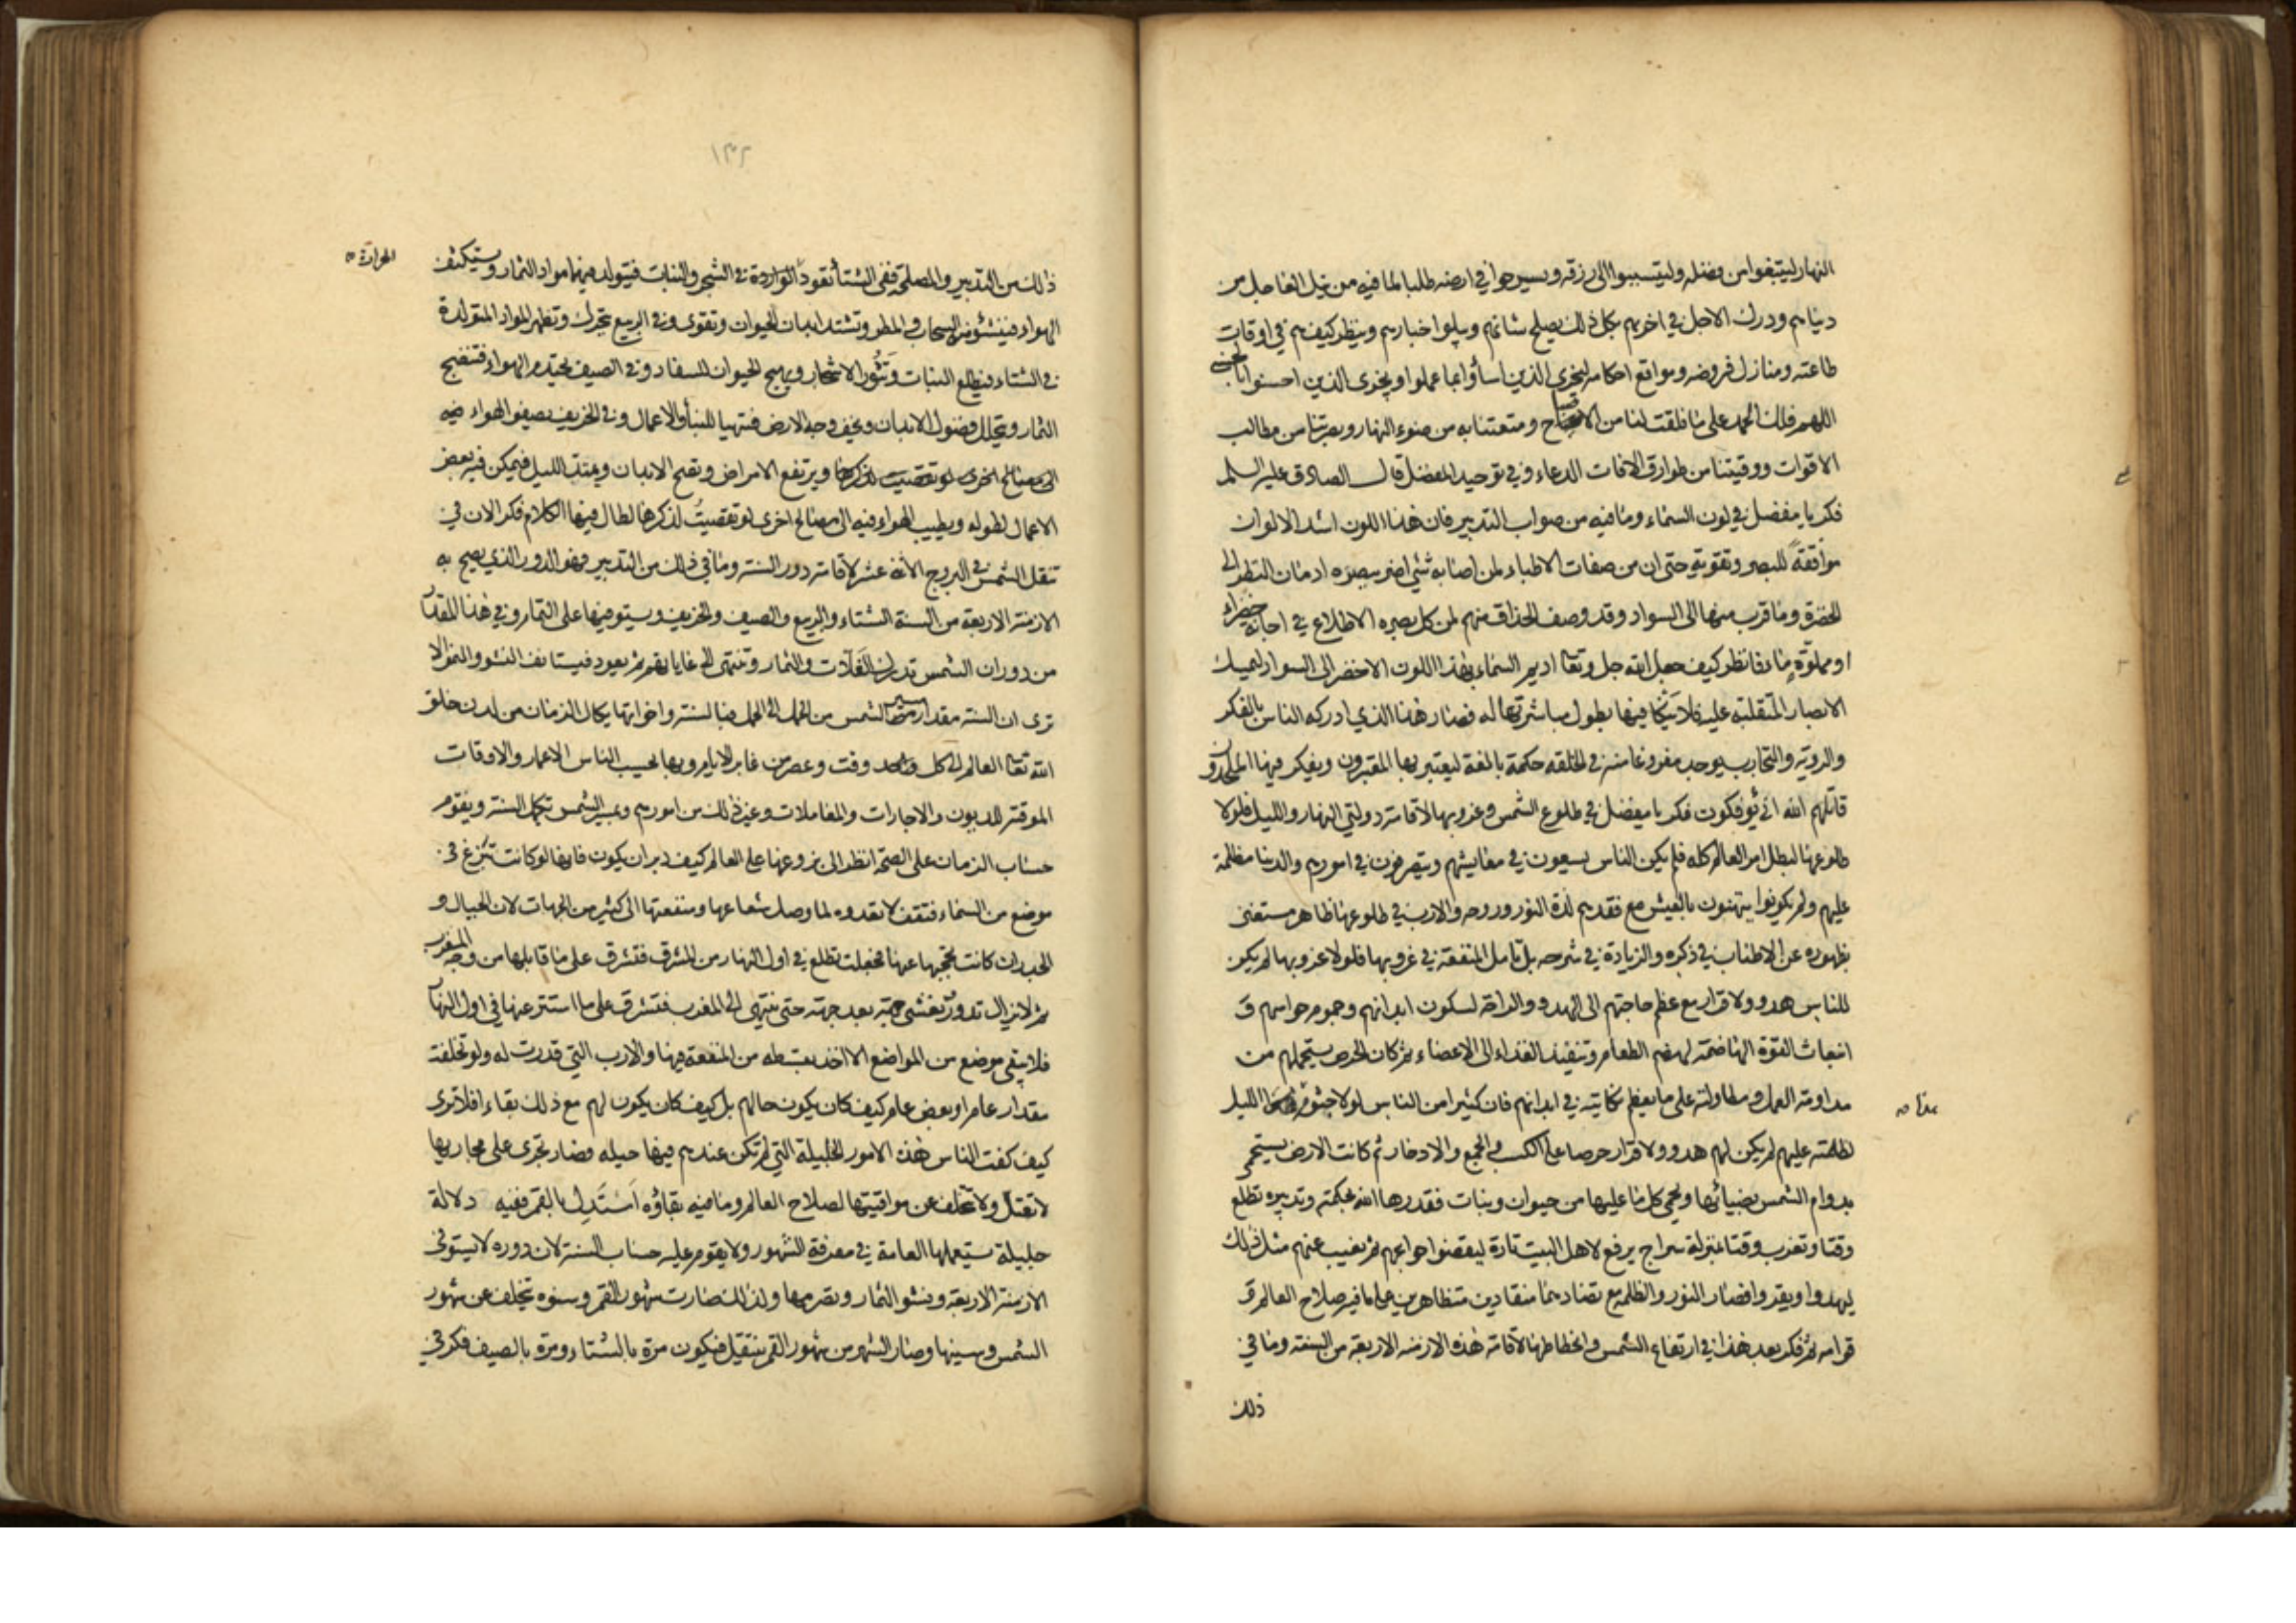 النهار ليبتغوا من فضله وليتسببوا الى رزقه ويسرحوا في ارضه طلبا لما فيه من نيل العاجل من
دنياهم ودرك الاجل في اخريهم بكل ذلك يصلح شانهم ويبلوا اخبارهم وينظر كيف هم في اوقات
طاعته ومنازل فروضه ومواقع احكامه ليجزي الذين اساؤا بما عملوا ويجزى الذين احسنوا بالحسنى
اللهم فلك الحمد على ما فلقت لنا من الاصباح ومتعتنا به من ضوء النهار وبصرتنا من مطالب
الاقوات ووقيتنا من طوارق الافات الدعاء وفي توحيد المفضل قال الصادق عليه السلم
فكر يا مفضل في لون السماء وما فيه من صواب التدبير فان هذا اللون اشد الالوان
موافقة للبصر وتقوية حتى ان من صفات الاطباء لمن اصابه شئ اضر ببصره ادمان النظر الى
الخضرة وما قرب منها الى السواد وقد وصف الحذاق منهم لمن كل بصره الاطلاع في اجانة خضراء
او مملوّة ماء فانظر كيف جعل الله جل وتعا اديم السماء بهذا اللون الاخضر الى السواد ليمسك
الابصار المتقلبة عليه فلا ينكا فيها بطول مباشرتها له فصار هذا الذي ادركه الناس بالفكر
والروية والتجارب يوجد مفروغا منه في الخلقه حكمة بالغة ليعتبر بها المعتبرون ويفكر فيها الملحدون
قاتلهم الله انى يؤفكون فكر يا مفضل في طلوع الشمس وغروبها لاقامة دولتي النهار والليل فلولا
طلوعها لبطل امر العالم كله فلم يكن الناس يسعون في معايشهم ويتصرفون في امورهم والدنيا مظلمة
عليهم ولم يكونوا يتهنون بالعيش مع فقدهم لذة النور وروحه والارب في طلوعها ظاهر مستغنى
بظهوره عن الاطناب في ذكره والزيادة في شرحه بل تامل المنفعة في غروبها فلولا غروبها لم يكن
للناس هدو ولا قرار مع عظم حاجتهم الى الهدو والراحة لسكون ابدانهم وجموم حواسهم و
انبعاث القوة الهاضمة لهضم الطعام وتنفيذ الغذاء الى الاعضاء ثم كان الحرص يستحملهم من
مداومة العمل ومطاولته على ما يعظم نكايته في ابدانهم فان كثيرا من الناس لولا جثوم هذا الليل
لظلمته عليهم لم يكن لهم هدو ولا قرار حرصا على الكسب والجمع والادخار ثم كانت الارض يستحمي
بدوام الشمس بضيائها ويحمى كل ما عليها من حيوان ونبات فقدرها الله بحكمته وتدبيره تطلع
وقتا وتغرب وقتا بمنزلة سراج يرفع لاهل البيت تارة ليقضوا حوائجهم ثم يغيب عنهم مثل ذلك
ليهدوا ويقروا فصار النور والظلمه مع تضادهما منقادين متظاهرين على ما فيه صلاح العالم و
قوامه ثم فكر بعد هذا في ارتفاع الشمس وانحطاطها لاقامة هذه الازمنه الاربعة من السنة وما في
ذلك
١٣٢
ذلك من التدبير والمصلحة ففي الشتا تعود الواردة في الشجر والنبات فيتولد فيهما مواد الثمار ويستكثف
الحرارة
الهواء فينشؤ منه السحاب والمطر وتشتد ابدان الحيوان وتقوى وفي الربيع تتحرك وتظهر المواد المتولدة
في الشتاء فيطلع النبات وتنور الاشجار ويهيج الحيوان للسفاد وفي الصيف يحتدم الهواء فتنضج
الثمار ويتحلل فضول الابدان ويجف وجه الارض فتهيا للبنا والاعمال وفي الخريف يصفو الهواء فيه
الى مصالح اخرى لو تقصيت لذكرها ويرتفع الامراض وتصح الابدان ويمتد الليل فيمكن فيه بعض
الاعمال لطوله ويطيب الهواء فيه الى مصالح اخرى لو تقصيت لذكرها لطال فيها الكلام فكر الان في
تنقل الشمس في البروج الاثنا عشر لاقامة دور السنة وما في ذلك من التدبير فهو الدور الذي يصح به
الازمنة الاربعة من السنة الشتاء والربيع والصيف والخريف ويستوفيها على التمام وفي هذا المقدار
من دوران الشمس تدرك الغلات والثمار وتنتهي الى غاياتهم ثم يعود فيستانف النشو والنمو الا
ترى ان السنة مقدار مسير الشمس من الحمل الى الحمل فبالسنة واخواتها يكال الزمان من لدن خلق
الله تعا العالم الى كل وقت وعصر من غابر الايام وبها يحسب الناس الاعمار والاوقات
الموقتة للديون والاجارات والمعاملات وغير ذلك من امورهم وبمسير الشمس تكمل السنة ويقوم
حساب الزمان على الصحة انظر الى بزوغها على العالم كيف دبر ان يكون فانها لو كانت تبزغ في
موضع من السماء فتقف لا تعدوه لما وصل شعاعها ومنفعتها الى كثير من الجهات لان الجبال و
الجدران كانت تحجبها عنها فجعلت تطلع في اول النهار من المشرق فتشرق على ما قابلها من وجه المغرب
ثم لا يزال تدور وتغشى جهة بعد جهة حتى تنتهي الى المغرب فتشرق على ما استتر عنها في اول النهار
فلا يبقى موضع من المواضع الا اخذ بقسطه من المنفعة منها والارب التي قدرت له ولو تخلفت
مقدار عام او بعض عام كيف كان يكون حالهم بل كيف كان يكون لهم مع ذلك بقاء افلا ترى
كيف كفت الناس هذه الامور الجليلة التي لم تكن عندهم فيها حيله فصار تجرى على مجاريها
لا تعتل ولا تتخلف عن مواقيتها لصلاح العالم وما فيه بقاؤه استدل بالقمر ففيه دلالة
جليلة يستعملها العامة في معرفة الشهور ولا يقوم عليه حساب السنة لان دوره لا يستوفى
الازمنة الاربعة ونشو الثمار وتصرمها ولذلك صارت شهور القمر وسنوه تتخلف عن شهور
الشمس وسنيها وصار الشهر من شهور القمر ينتقل فيكون مرة بالشتاء ومرة بالصيف فكر في